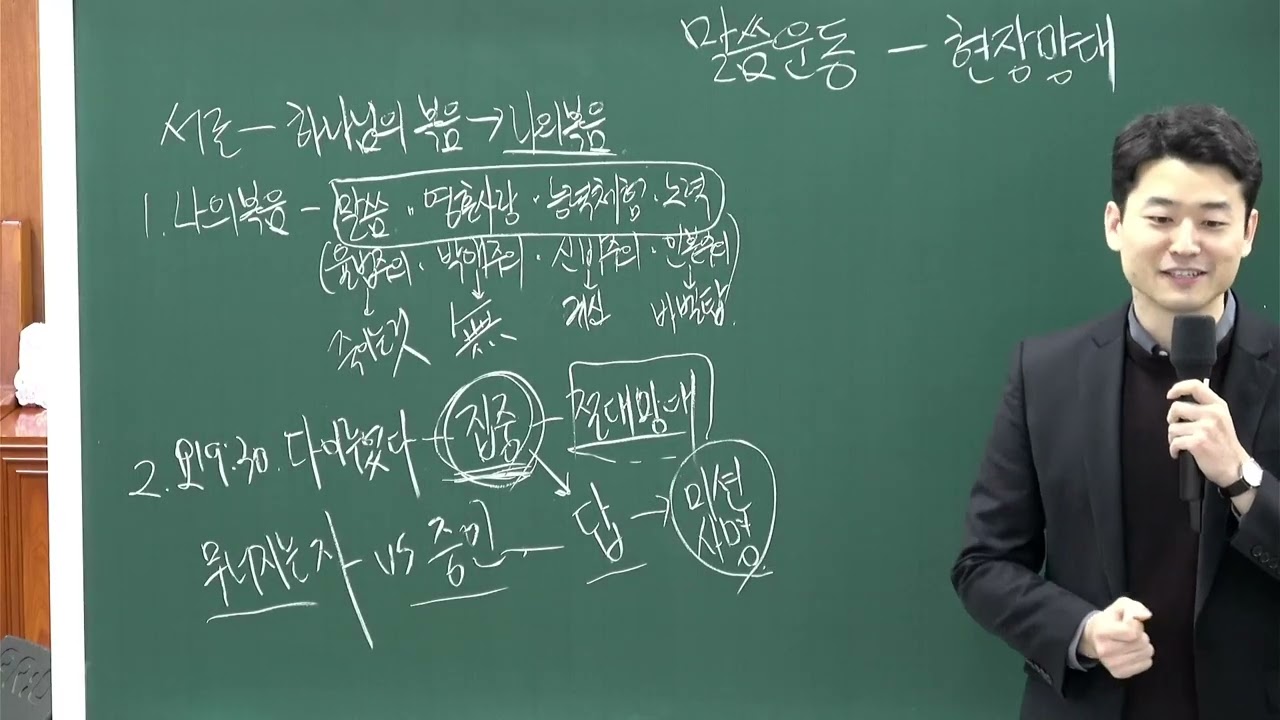 말씀운동 - 현장망대
서론 - 하나님의 복음 → 나의복음
1. 나의복음 - 말씀 · 영혼사랑 · 능력체험 · 노력
(율법주의 · 박애주의 · 신비주의 · 인본주의)
죽이는것 無 귀신 바벨탑.
2. 요19:30. 다이루었다 - 집중 - 절대망대
무너지는 자 vs 증인 - 답 → 미션
사명.